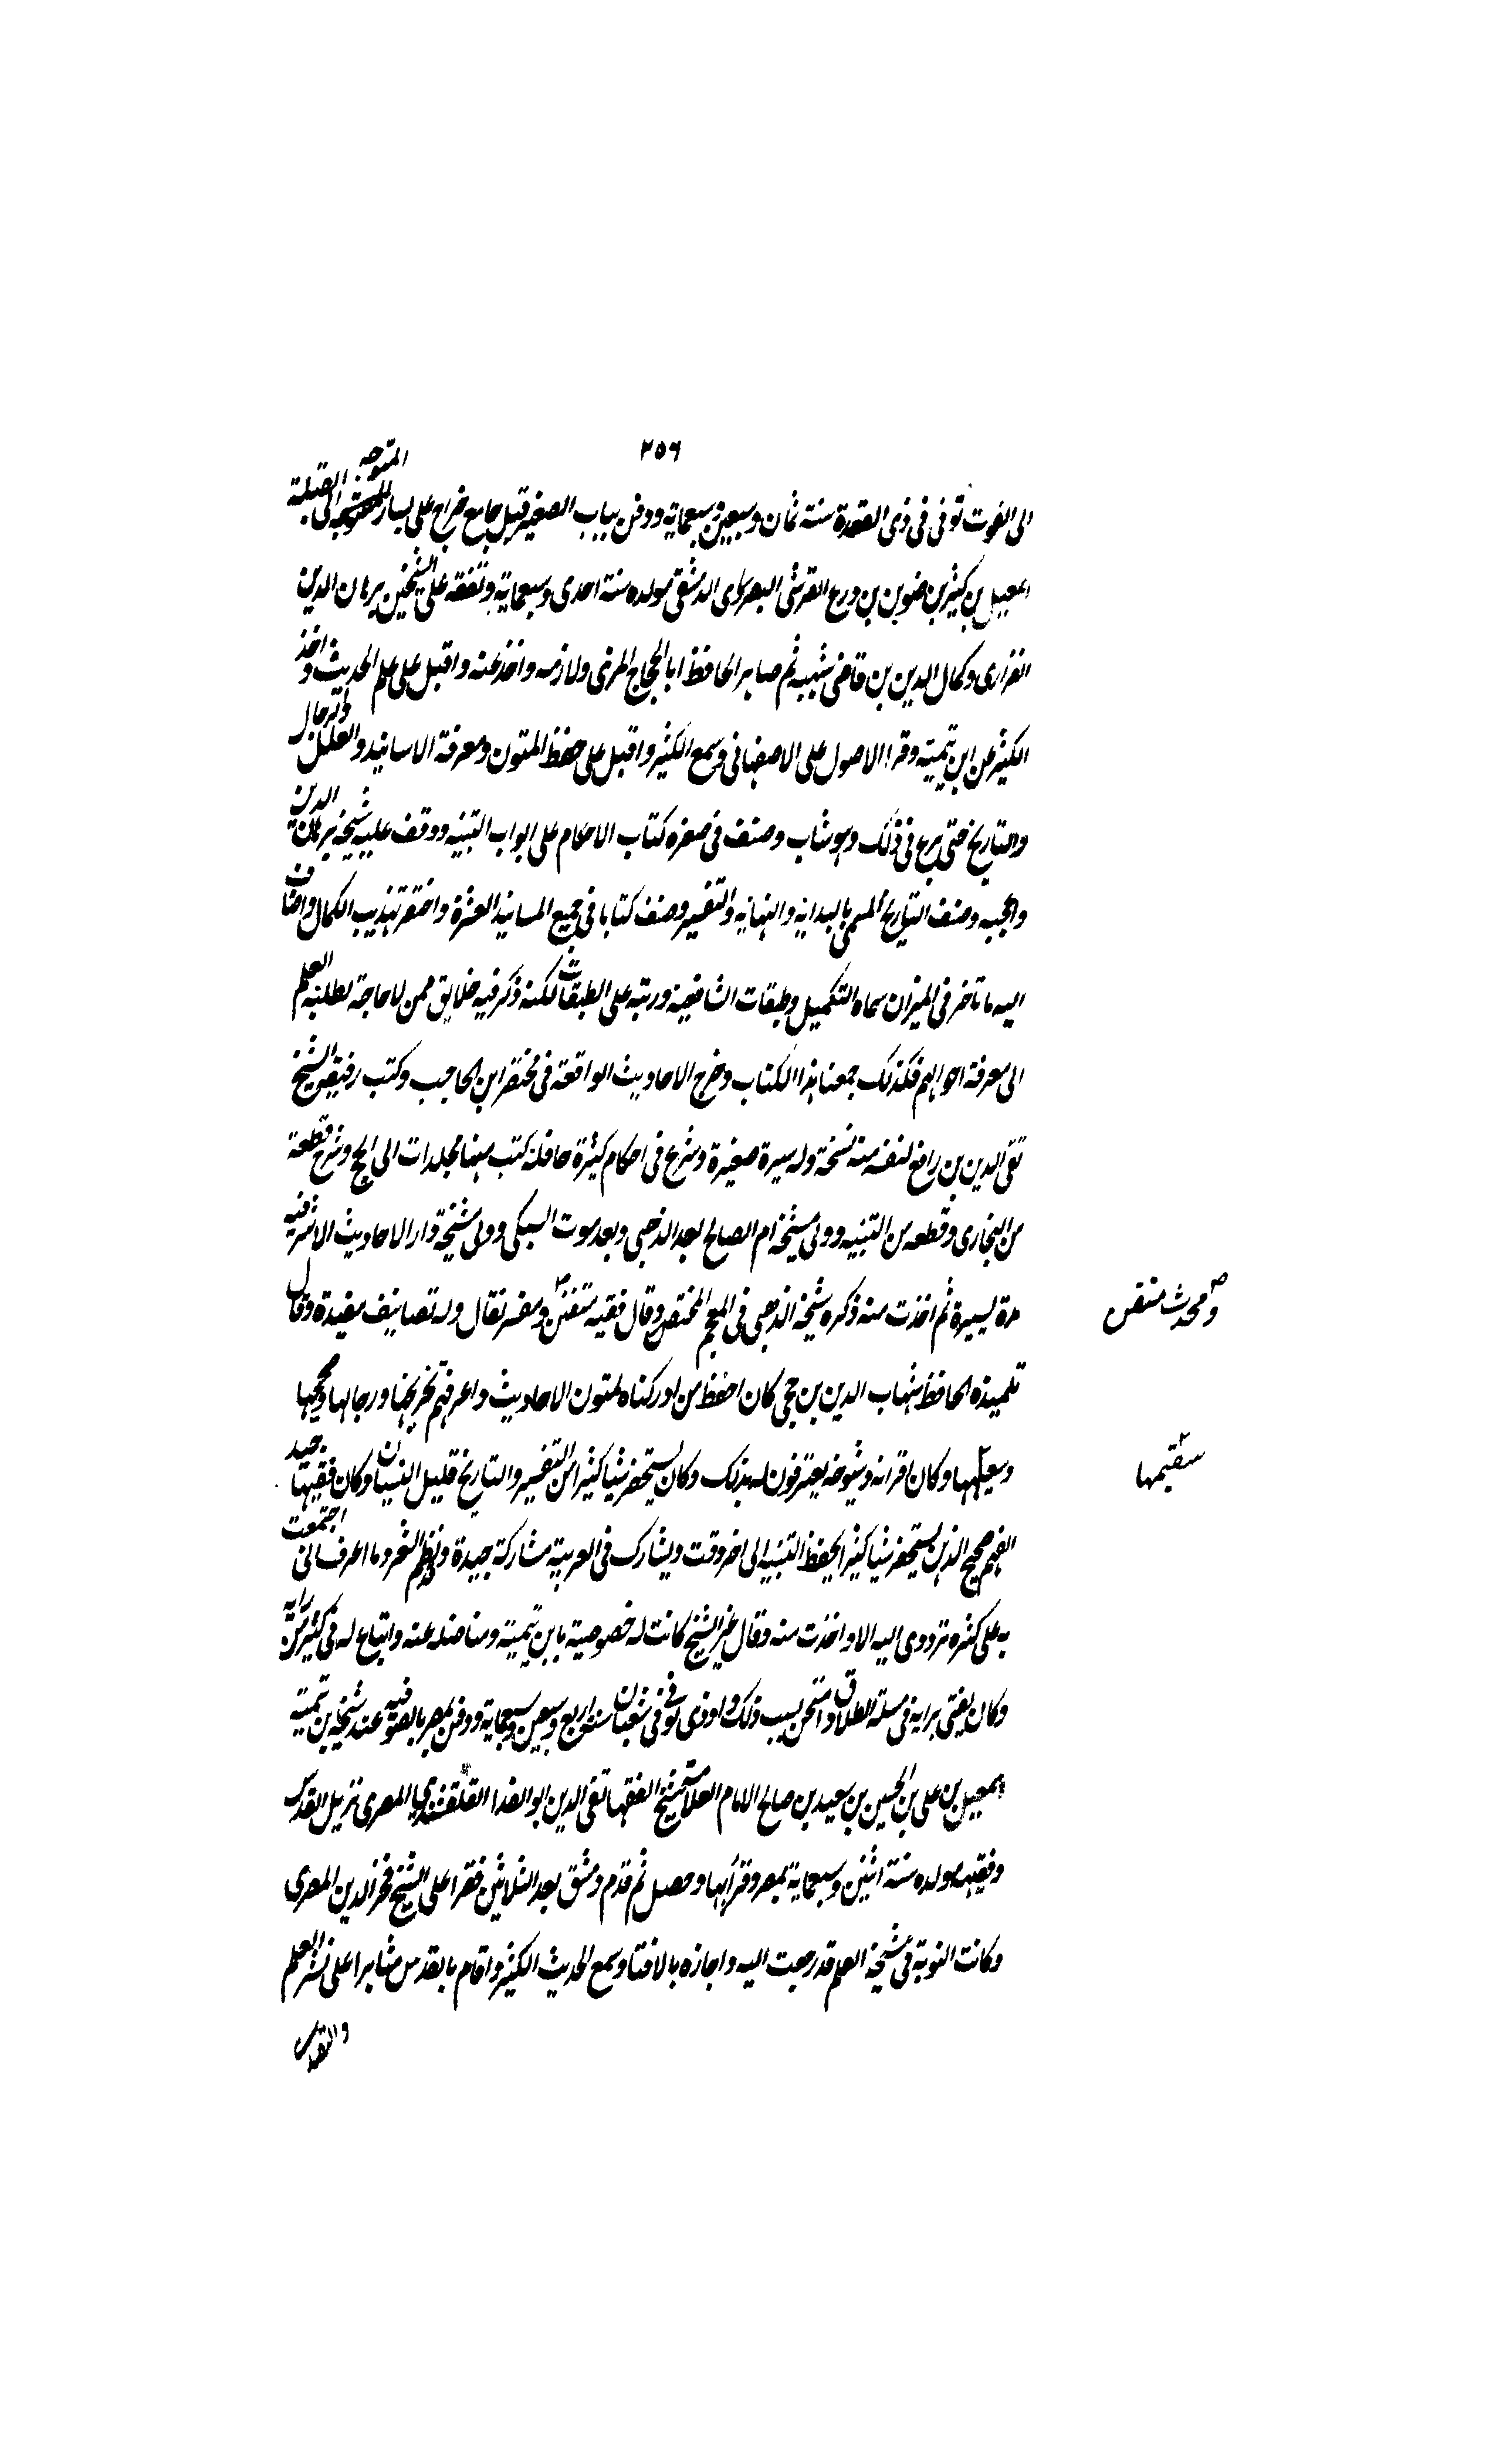 ٢٥٦
الى الفوت توفى فى ذى القعدة سنة ثمان وسبعين وسبعماية ودفن بباب الصغير قبل جامع جراح على يسار المتوجه الى القبلة
اسمعيل بن كثير بن ضو بن بن درع القرشى البصراوى الدمشقى مولده سنة احدى وسبعماية وتفقه على الشيخين برهان الدين
الفزارى وكمال الدين بن قاضى شهبه ثم صاهر الحافظ ابا الحجاج المزى ولازمه واخذ عنه واقبل على علم الحديث واخذ
الكثير عن ابن تيمية وقرا الاصول على الاصفهانى وسمع الكثير واقبل على حفظ المتون ومعرفة الاسانيد والعلل والرجال
والتاريخ حتى برع فى ذلك وهو شاب وصنف فى صغره كتاب الاحكام على ابواب التنبيه ووقف عليه شيخه برهان الدين
واعجبه وصنف التاريخ المسمى بالبداية والنهاية والتفسير وصنف كتابا فى جميع المسانيد العشرة واختصر تهذيب الكمال واضاف
اليه ما تاخر فى الميزان سماه التكميل وطبقات الشافعية ورتبه على الطبقات لكنه ذكر فيه خلايق ممن لا حاجة لطلبة العلم
الى معرفة احوالهم فلذلك جمعنا هذا الكتاب وخرج الاحاديث الواقعة فى مختصر ابن الحاجب وكتب رفيقه الشيخ
تقى الدين بن رافع لنفسه منه نسخة وله سيرة صغيرة وشرع فى احكام كثيرة حافلة كتب منها مجلدات الى الحج وشرح قطعة
من البخارى وقطعه من التنبيه وولى مشيخة ام الصالح بعد الذهبى وبعد موت السبكى وولى مشيخة دار الاحاديث الاشرفيه
مدة يسيرة ثم اخذت منه ذكره شيخه الذهبى فى المعجم المختص وقال فقيه متفنن ومفسر نقال وله تصانيف مفيدة وقال
ومحدث متقن
تلميذه الحافظ شهاب الدين بن حجى كان احفظ من ادركناه لمتون الاحاديث واعرفهم بتخريجها ورجالها وصحيحها
وسقيمها وكان اقرانه وشيوخه يعترفون له بذلك وكان يستحضر شيا كثيرا من التفسير والتاريخ قليل النسيان وكان فقيها جيد
سقيمها
الفهم صحيح الذهن يستحضر شيا كثيرا يحفظ التنبيه الى اخر وقت ويشارك فى العربية مشاركة جيدة ونظم الشعر وما اعرف انى اجتمعت
به على كثرة ترددى اليه الا واخذت منه وقال غير الشيخ كانت له خصوصية بابن تيمية ومناضله عنه واتباع له فى كثير من رايه
وكان يفتى برايه فى مسلة الطلاق وامتحن بسبب ذلك واوذى توفى فى شعبان سنة اربع وسبعين وسبعماية ودفن بمقبرة الصوفيه عند شيخه ابن تيمية
اسمعيل بن على بن الحسين بن سعيد بن صالح الامام العلامة شيخ الفقها تقى الدين ابو الفدا القلقشندى المصرى نزيل القدس
وفقيهه مولده سنة اثنين وسبعماية بمصر وقرا بها وحصل ثم قدم دمشق بعد الثلاثين فقرا على الشيخ فخر الدين المصرى
وكانت النوبة فى مشيخة العلم قد رجعت اليه واجازه بالافتا وسمع الحديث الكثير واقام بالقدس مثابرا على نشر العلم
والتصد